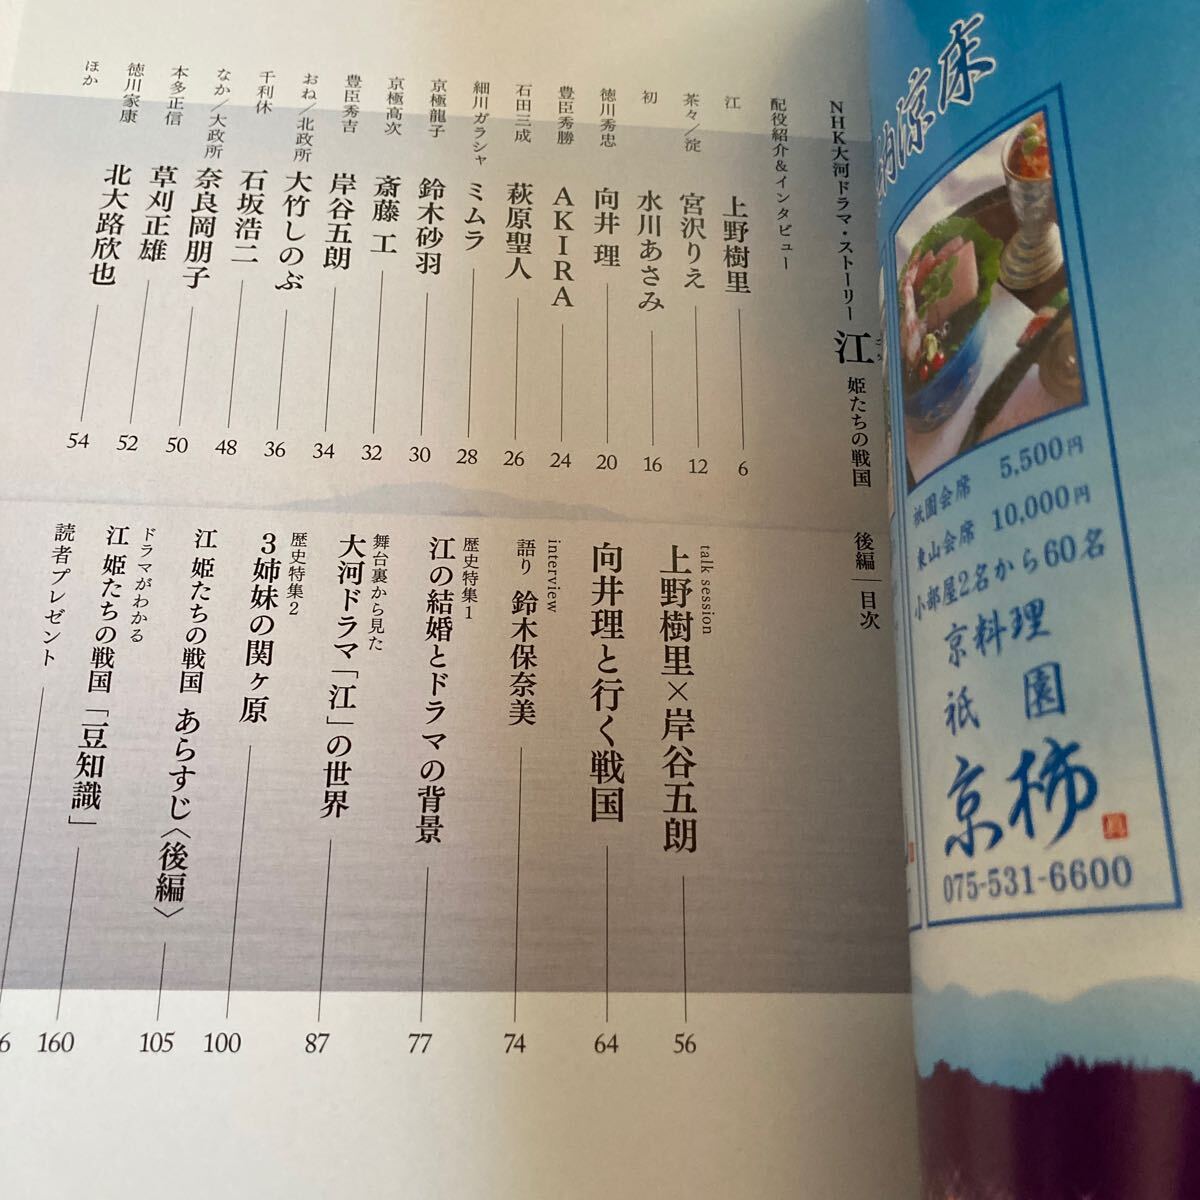 納涼床
5,500円
祇園会席
10,000円
東山会席
小部屋2名から60名
京料理
祇園
京柿
075-531-6600
NHK大河ドラマ・ストーリー 江 姫たちの戦国 後編 目次
配役紹介&インタビュー
江 上野樹里 6
茶々/淀 宮沢りえ 12
初 水川あさみ 16
徳川秀忠 向井 理 20
豊臣秀勝 AKIRA 24
石田三成 萩原聖人 26
細川ガラシャ ミムラ 28
京極龍子 鈴木砂羽 30
京極高次 斎藤 工 32
豊臣秀吉 岸谷五朗 34
おね/北政所 大竹しのぶ 36
千利休 石坂浩二 48
なか/大政所 奈良岡朋子 50
本多正信 草刈正雄 52
徳川家康 北大路欣也 54
ほか
talk session
上野樹里×岸谷五朗 56
向井理と行く戦国 64
interview
語り 鈴木保奈美 74
歴史特集1
江の結婚とドラマの背景 77
舞台裏から見た
大河ドラマ「江」の世界 87
歴史特集2
3姉妹の関ヶ原 100
江 姫たちの戦国 あらすじ〈後編〉 105
ドラマがわかる
江 姫たちの戦国「豆知識」 160
読者プレゼント